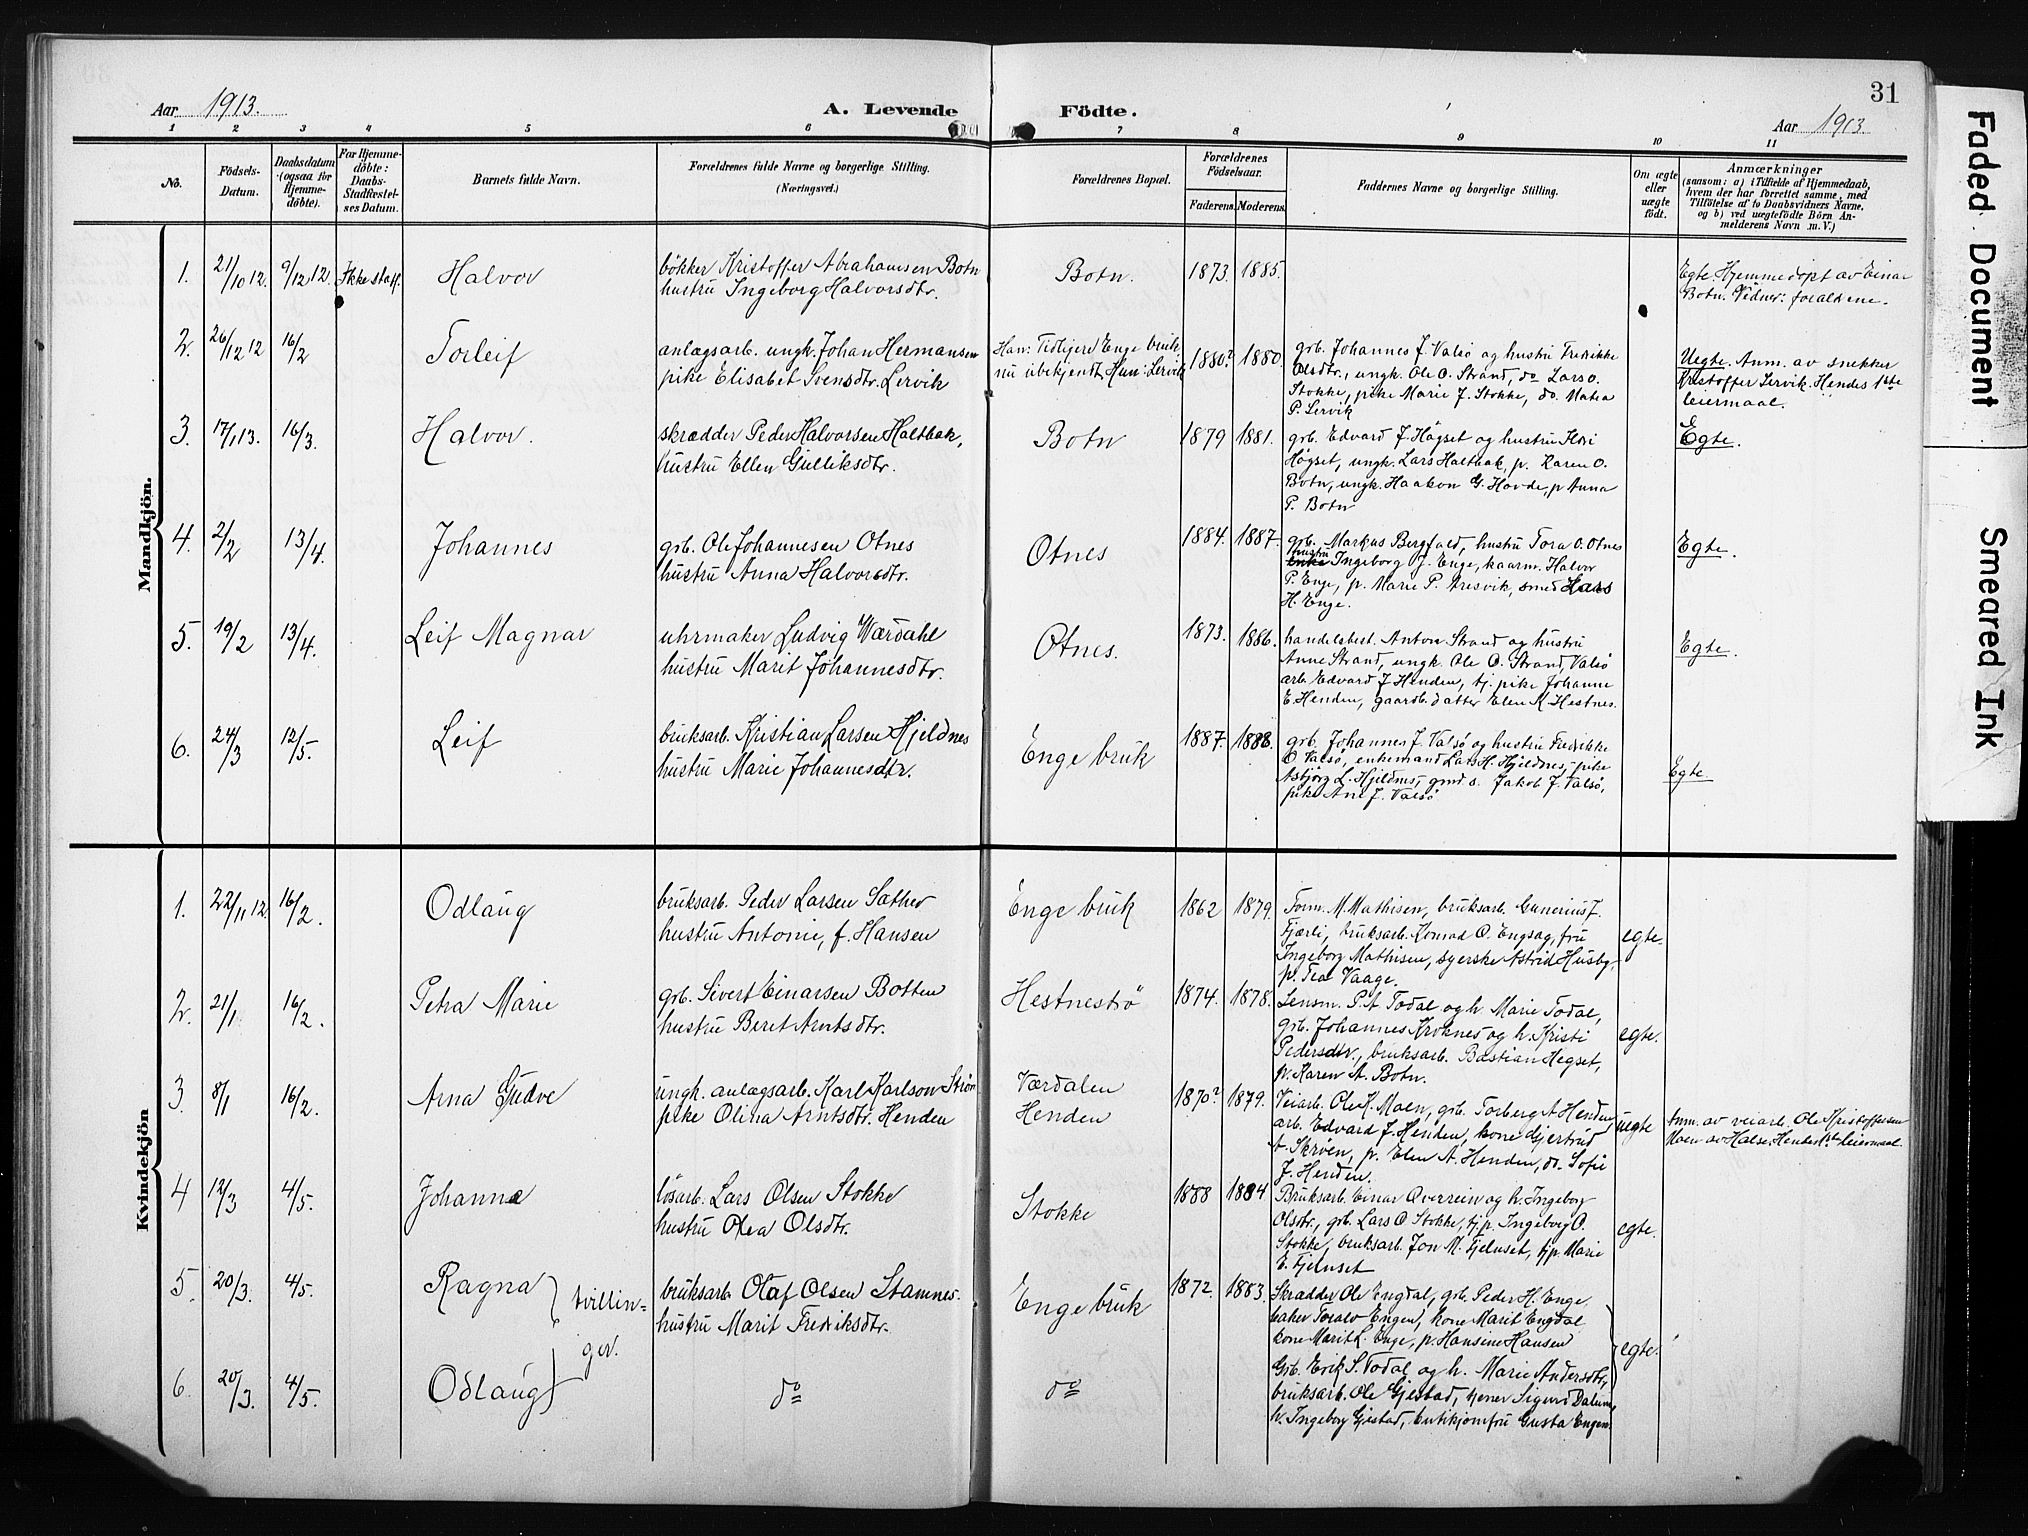 31
Aar 1913.
A. Levende Födte.
Aar 1913.
1 2 3 4 5 6 7 8 9 10 11
No.
Födsels-
Datum.
Daabsdatum
(ogsaa for
Hjemme-
döbte).
For Hjemme-
döbte:
Daabs-
Stadfæstel-
ses Datum.
Barnets fulde Navn.
Forældrenes fulde Navne og borgerlige Stilling.
(Næringsvei.)
Forældrenes Bopæl.
Forældrenes
Födselsaar.
Faderens. Moderens.
Faddernes Navne og borgerlige Stilling.
Om ægte
eller
uægte
födt.
Anmærkninger
(saasom: a) i Tilfælde af Hjemmedaab,
hvem der har forrettet samme, med
Tilföielse af to Daabsvidners Navne,
og b) ved uægtefödte Börn An-
melderens Navn m. V.)
Mandkjön.
1. 21/10 12. 9/12 12. Ikke staf. Halvor
bökker Kristoffer Abrahamsen Botn
hustru Ingeborg Halvorsdtr.
Botn. 1873. 1885.
Egte. Hjemmedöpt av Einar
Botn. Vidner: forældrene.
2. 26/12 12 16/2 Torleif
anlægsarb. ungk. Johan Hermansen
pike Elisabet Svensdtr. Lervik
Han: Tidligere Enge bruk
nu ubekjendt, Hun: Lervik
1880? 1880.
grb. Johannes J. Valsö og hustru Fredrikke
Olsdtr., ungk. Ole O. Strand, do Lars O.
Stokke, pike Marie J. Stokke, do. Matea
P. Lervik
Uegte. Anm. av snekker
Kristoffer Lervik. Hendes 1ste
leiermaal.
3. 17/1 13. 16/3. Halvor.
skrædder Peder Halvorsen Haltbak,
hustru Ellen Gulliksdtr.
Botn 1879 1881.
grb. Edvard J. Högset og hustru
Högset, ungk. Lars Haltbak, p. Karen O.
Botn, ungk. Haakon G. Hovde, p Anna
P. Botn
Egte.
4. 2/2 13/4. Johannes
grb. Ole Johannesen Otnes
hustru Anna Halvorsdtr.
Otnes 1884. 1887.
grb. Markus Bergfald, hustru Tora O. Otnes
hustru
enke Ingeborg J. Enge, kaarm. Halvor
P. Enge, p. Marie P. Aresvik, smed Lars
H. Enge.
Egte.
5. 19/2 13/4. Leif Magnar
uhrmaker Ludvig Værdahl
hustru Marit Johannesdtr.
Otnes. 1873. 1886.
handelsbest. Anton Strand og hustru
Anne Strand, ungk. Ole O. Strand, Valsö
arb. Edvard J Henden, tj. pike Johanne
E. Henden, gaardb. datter Elen K. Hestnes.
Egte.
6. 24/3 12/5. Leif
bruksarb. Kristian Larsen Hjeldnes
hustru Marie Johannesdtr.
Enge bruk 1887. 1888.
grb. Johannes J. Valsö og hustru Fredrikke
O Valsö, enkemand Lars H. Hjeldnes, pike
Asbjörg L. Hjeldnes, gmd s. Jakob J. Valsö,
pike Ane J. Valsö
Egte
Kvindekjön
1. 22/11 12. 16/2. Odlaug
bruksarb. Peder Larsen Sæther
hustru Antonie, f. Hansen
Enge bruk 1862 1879.
Form. M. Mathisen, bruksarb. Gunerius J.
Fjærli, bruksarb. Konrad O. Engsag, fru
Ingeborg Mathisen, syerske Astrid Husby,
p. Tea Vaage.
egte.
2. 21/1 16/2. Petra Marie
grb. Sivert Einarsen Botten
hustru Beret Arntsdtr.
Hestneströ 1874. 1878.
Lensm. P. A. Todal og h. Marie Todal,
grb. Johannes Kroknes og h. Kristi
Pedersdtr., bruksarb. Bastian Hegset,
p. Karen A. Botn.
egte.
3. 8/1 16/2. Arna Gudve
ungk. anlægsarb. Karl Karlson Ström
pike Olina Arntsdtr. Henden
Værdalen
Henden
1870? 1879.
Veiarb. Ole K. Moen, grb. Torberg A Henden,
arb. Edvard J. Henden, kone Gjertrud
A. Skröen, p. Elen A. Henden, do. Sofie
J. Henden.
uegte
Anm. av veiarb. Ole Kristoffersen
Moen av Halse. Hendes 1ste leiermaal.
4 12/3 4/5. Johanne
lösarb. Lars Olsen Stokke
hustru Olea Olsdtr.
Stokke 1888 1884
Bruksarb. Einar Overrein og h. Ingeborg
Olsdtr., grb. Lars O Stokke, tj.p. Ingeborg O.
Stokke, bruksarb. Jon M. Fjelnset, tjp. Marie
E. Fjelnset
egte.
5. 20/3. 4/5. Ragna
tvillin-
ger.
bruksarb. Olaf Olsen Stamnes.
hustru Marit Fredriksdtr.
Enge bruk 1872. 1883.
Skrædder Ole Engdal, grb. Peder H. Enge,
baker Toralv Engen, kone Marit Engdal
kone Marit L. Enge, p. Hansine Hansen
egte.
6. 20/3. 4/5. Odlaug
do
do
Grb. Erik S. Todal og h. Marie Andersdtr,
bruksarb. Ole Gjestad, tjener Sigurd Dalum,
h. Ingeborg Gjestad, butikjomfru Gusta Engen.
Faded Document
Smeared Ink